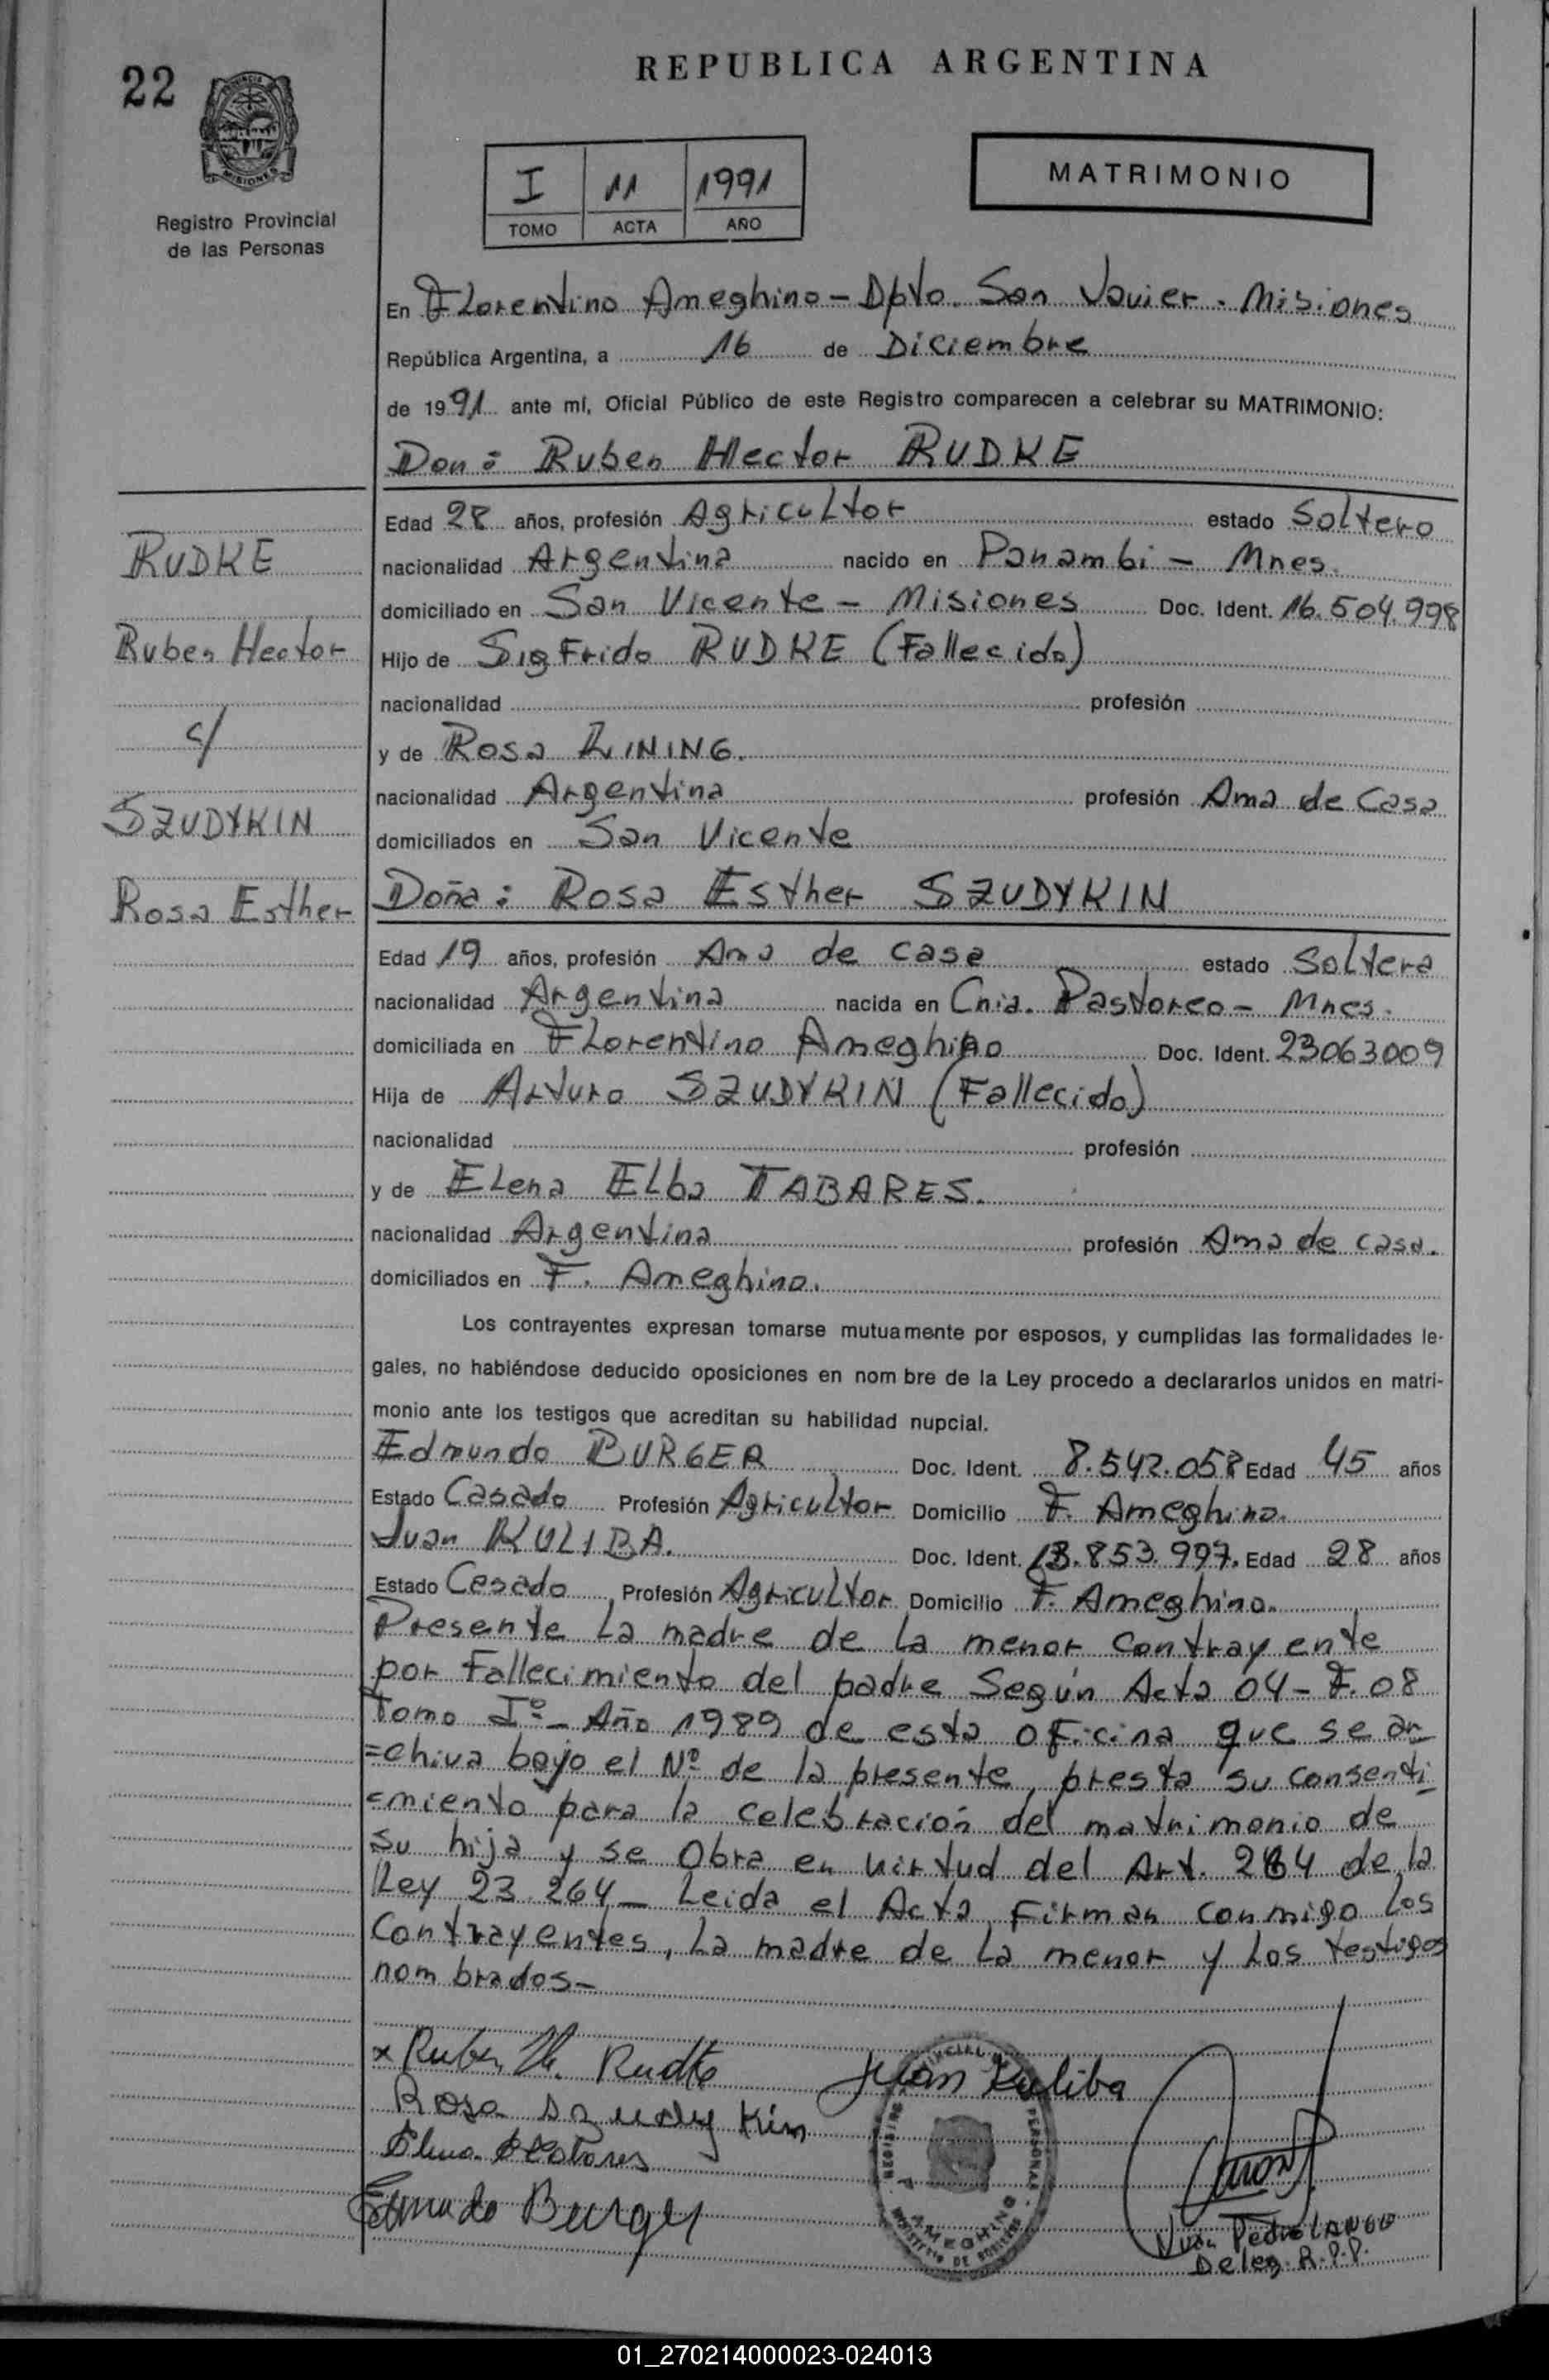 22
REPUBLICA ARGENTINA
MISIONES
Registro Provincial
de las Personas
I 11 1991
TOMO ACTA AÑO
MATRIMONIO
En Florentino Ameghino - Dpto. San Javier. Misiones
República Argentina, a 16 de Diciembre
de 1991 ante mí, Oficial Público de este Registro comparecen a celebrar su MATRIMONIO:
Don: Ruben Hector RUDKE
Edad 28 años, profesión Agricultor estado Soltero
RUDKE
nacionalidad Argentina nacido en Panambi - Mnes.
domiciliado en San Vicente - Misiones Doc. Ident. 16.504.998
Ruben Hector
Hijo de Sigfrido RUDKE (Fallecido)
nacionalidad profesión
c/
y de Rosa LINING.
nacionalidad Argentina profesión Ama de Casa
SZUDYKIN
domiciliados en San Vicente
Rosa Esther
Doña: Rosa Esther SZUDYKIN
Edad 19 años, profesión Ama de casa estado Soltera
nacionalidad Argentina nacida en Cnia. Pastoreo - Mnes.
domiciliada en Florentino Ameghino Doc. Ident. 23063009
Hija de Arturo SZUDYKIN (Fallecido)
nacionalidad profesión
y de Elena Elba TABARES.
nacionalidad Argentina profesión Ama de casa.
domiciliados en F. Ameghino.
Los contrayentes expresan tomarse mutuamente por esposos, y cumplidas las formalidades le-
gales, no habiéndose deducido oposiciones en nom bre de la Ley procedo a declararlos unidos en matri-
monio ante los testigos que acreditan su habilidad nupcial.
Edmundo BURGER Doc. Ident. 8.542.058 Edad 45 años
Estado Casado Profesión Agricultor Domicilio F. Ameghino.
Juan KULIBA. Doc. Ident. 18.853.997. Edad 28 años
Estado Casado Profesión Agricultor Domicilio F. Ameghino.
Presente la madre de la menor contrayente
por Fallecimiento del padre Según Acta 04 - F. 08
Tomo Iº - Año 1989 de esta oficina que se ar
=chiva bajo el Nº de la presente, presta su consenti
=miento para la celebración del matrimonio de
su hija y se Obra en virtud del Art. 264 de la
Ley 23.264 - Leida el Acta, Firman conmigo los
Contrayentes, la madre de la menor y los testigos
nombrados -
x Ruben H. Rudke Juan Kuliba
Rosa Szudykin
Elena
Edmundo Burger
AMEGHINO
Juan Pedro LANGO
Deleg. R.P.P.
01_270214000023-024013